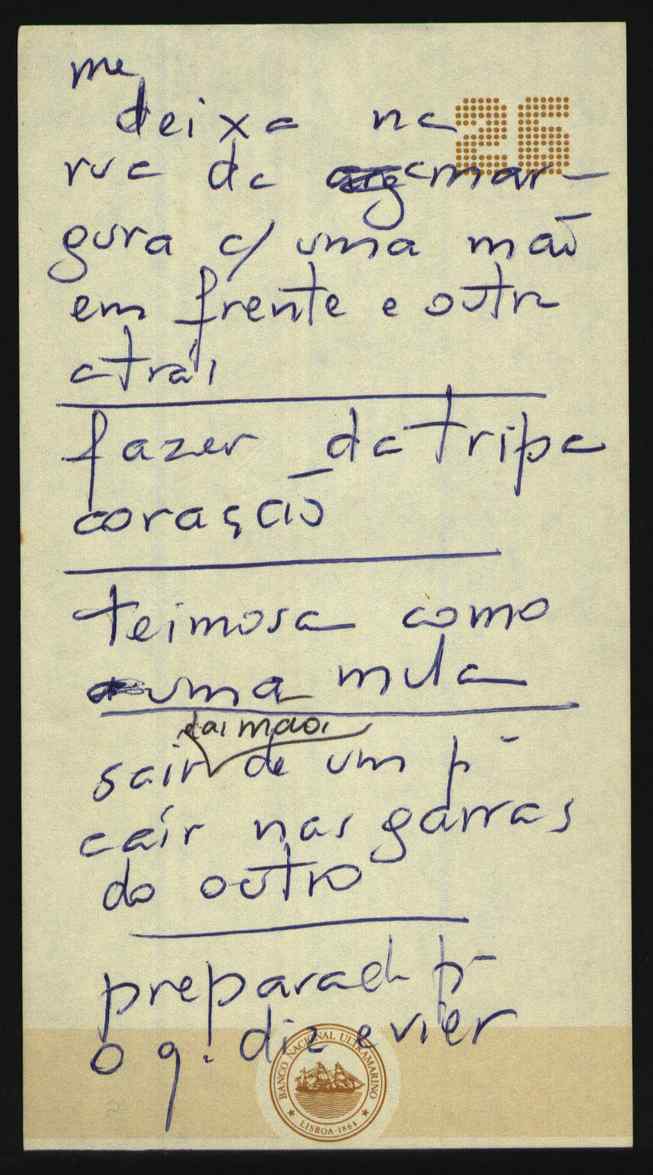 me
deixa na 26
rua da amar-
gura c/ uma mão
em frente e outra
atrás
fazer da tripa
coração
teimosa como
uma mula
das mãos
sair de um p-
cair nas garras
do outro
preparada p-
o q. di e vier
BANCO NACIONAL ULTRAMARINO
LISBOA - 1864